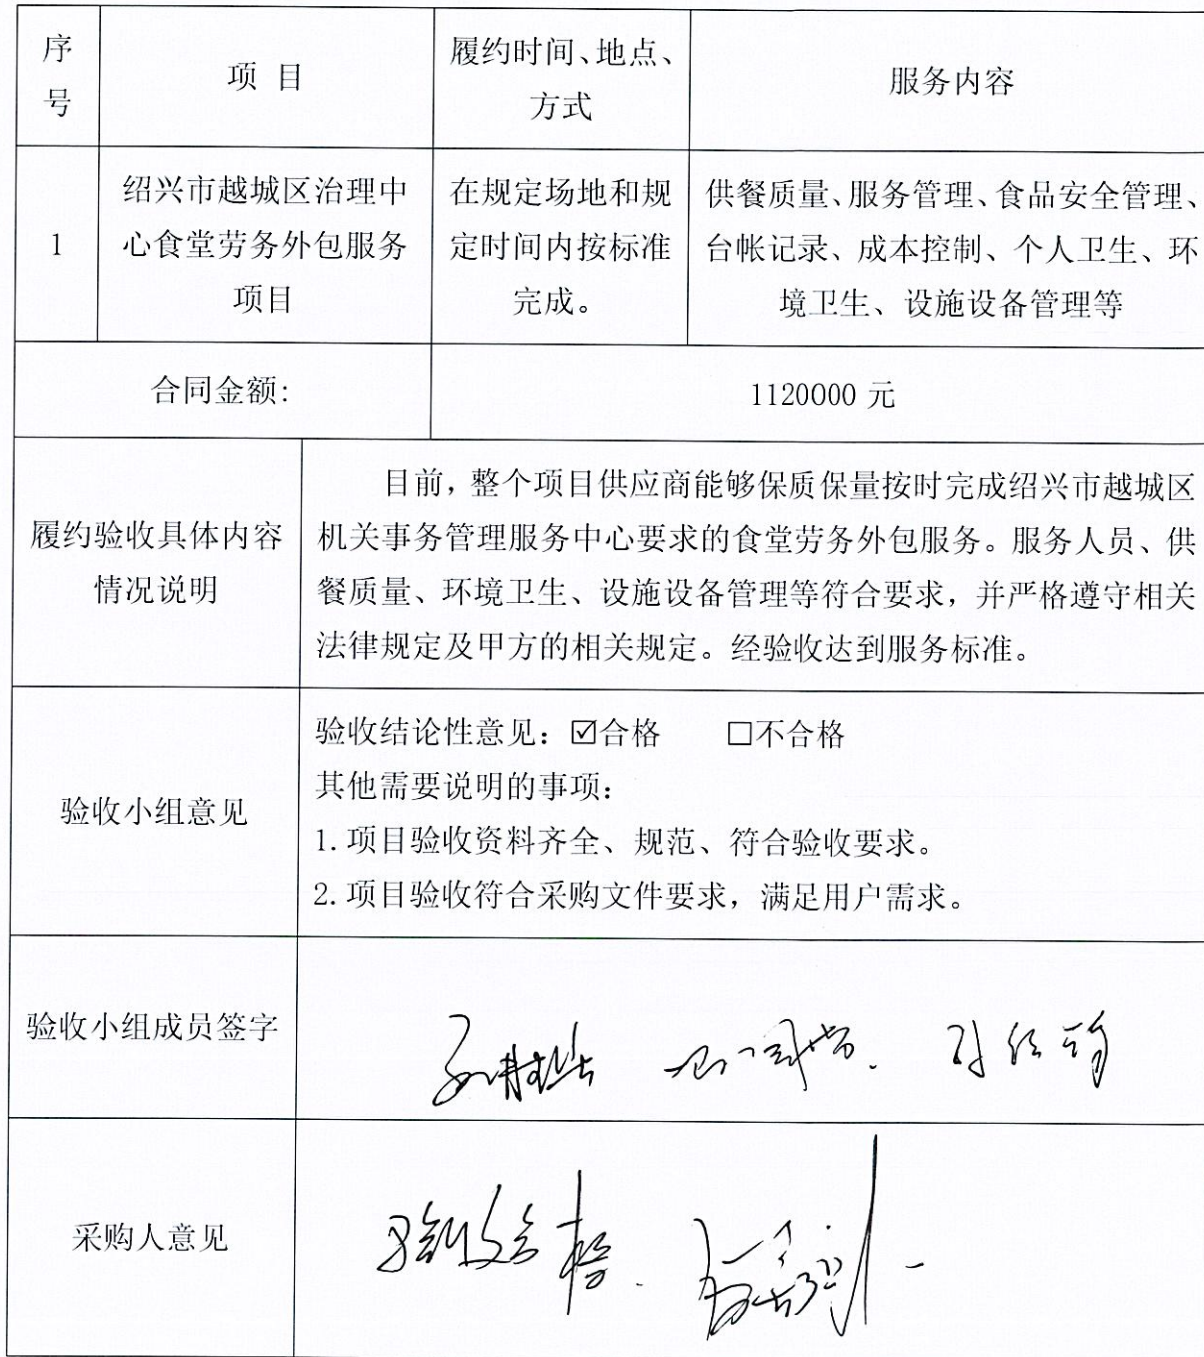 序号
项 目
履约时间、地点、
方式
服务内容
1
绍兴市越城区治理中
心食堂劳务外包服务
项目
在规定场地和规
定时间内按标准
完成。
供餐质量、服务管理、食品安全管理、
台帐记录、成本控制、个人卫生、环
境卫生、设施设备管理等
合同金额:
1120000 元
履约验收具体内容
情况说明
目前，整个项目供应商能够保质保量按时完成绍兴市越城区
机关事务管理服务中心要求的食堂劳务外包服务。服务人员、供
餐质量、环境卫生、设施设备管理等符合要求，并严格遵守相关
法律规定及甲方的相关规定。经验收达到服务标准。
验收小组意见
验收结论性意见：☑合格 □不合格
其他需要说明的事项：
1.项目验收资料齐全、规范、符合验收要求。
2.项目验收符合采购文件要求，满足用户需求。
验收小组成员签字
采购人意见
验收合格.